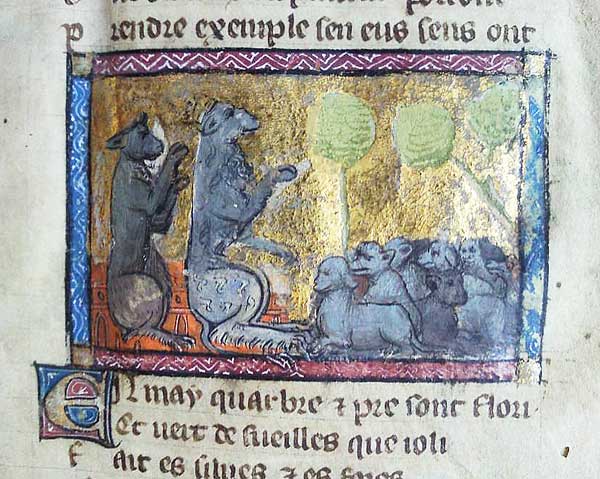 prendre exemple sen eus sens ont
En may quarbre ⁊ pre sont flori
Et vert de fueilles que ioli
fait es